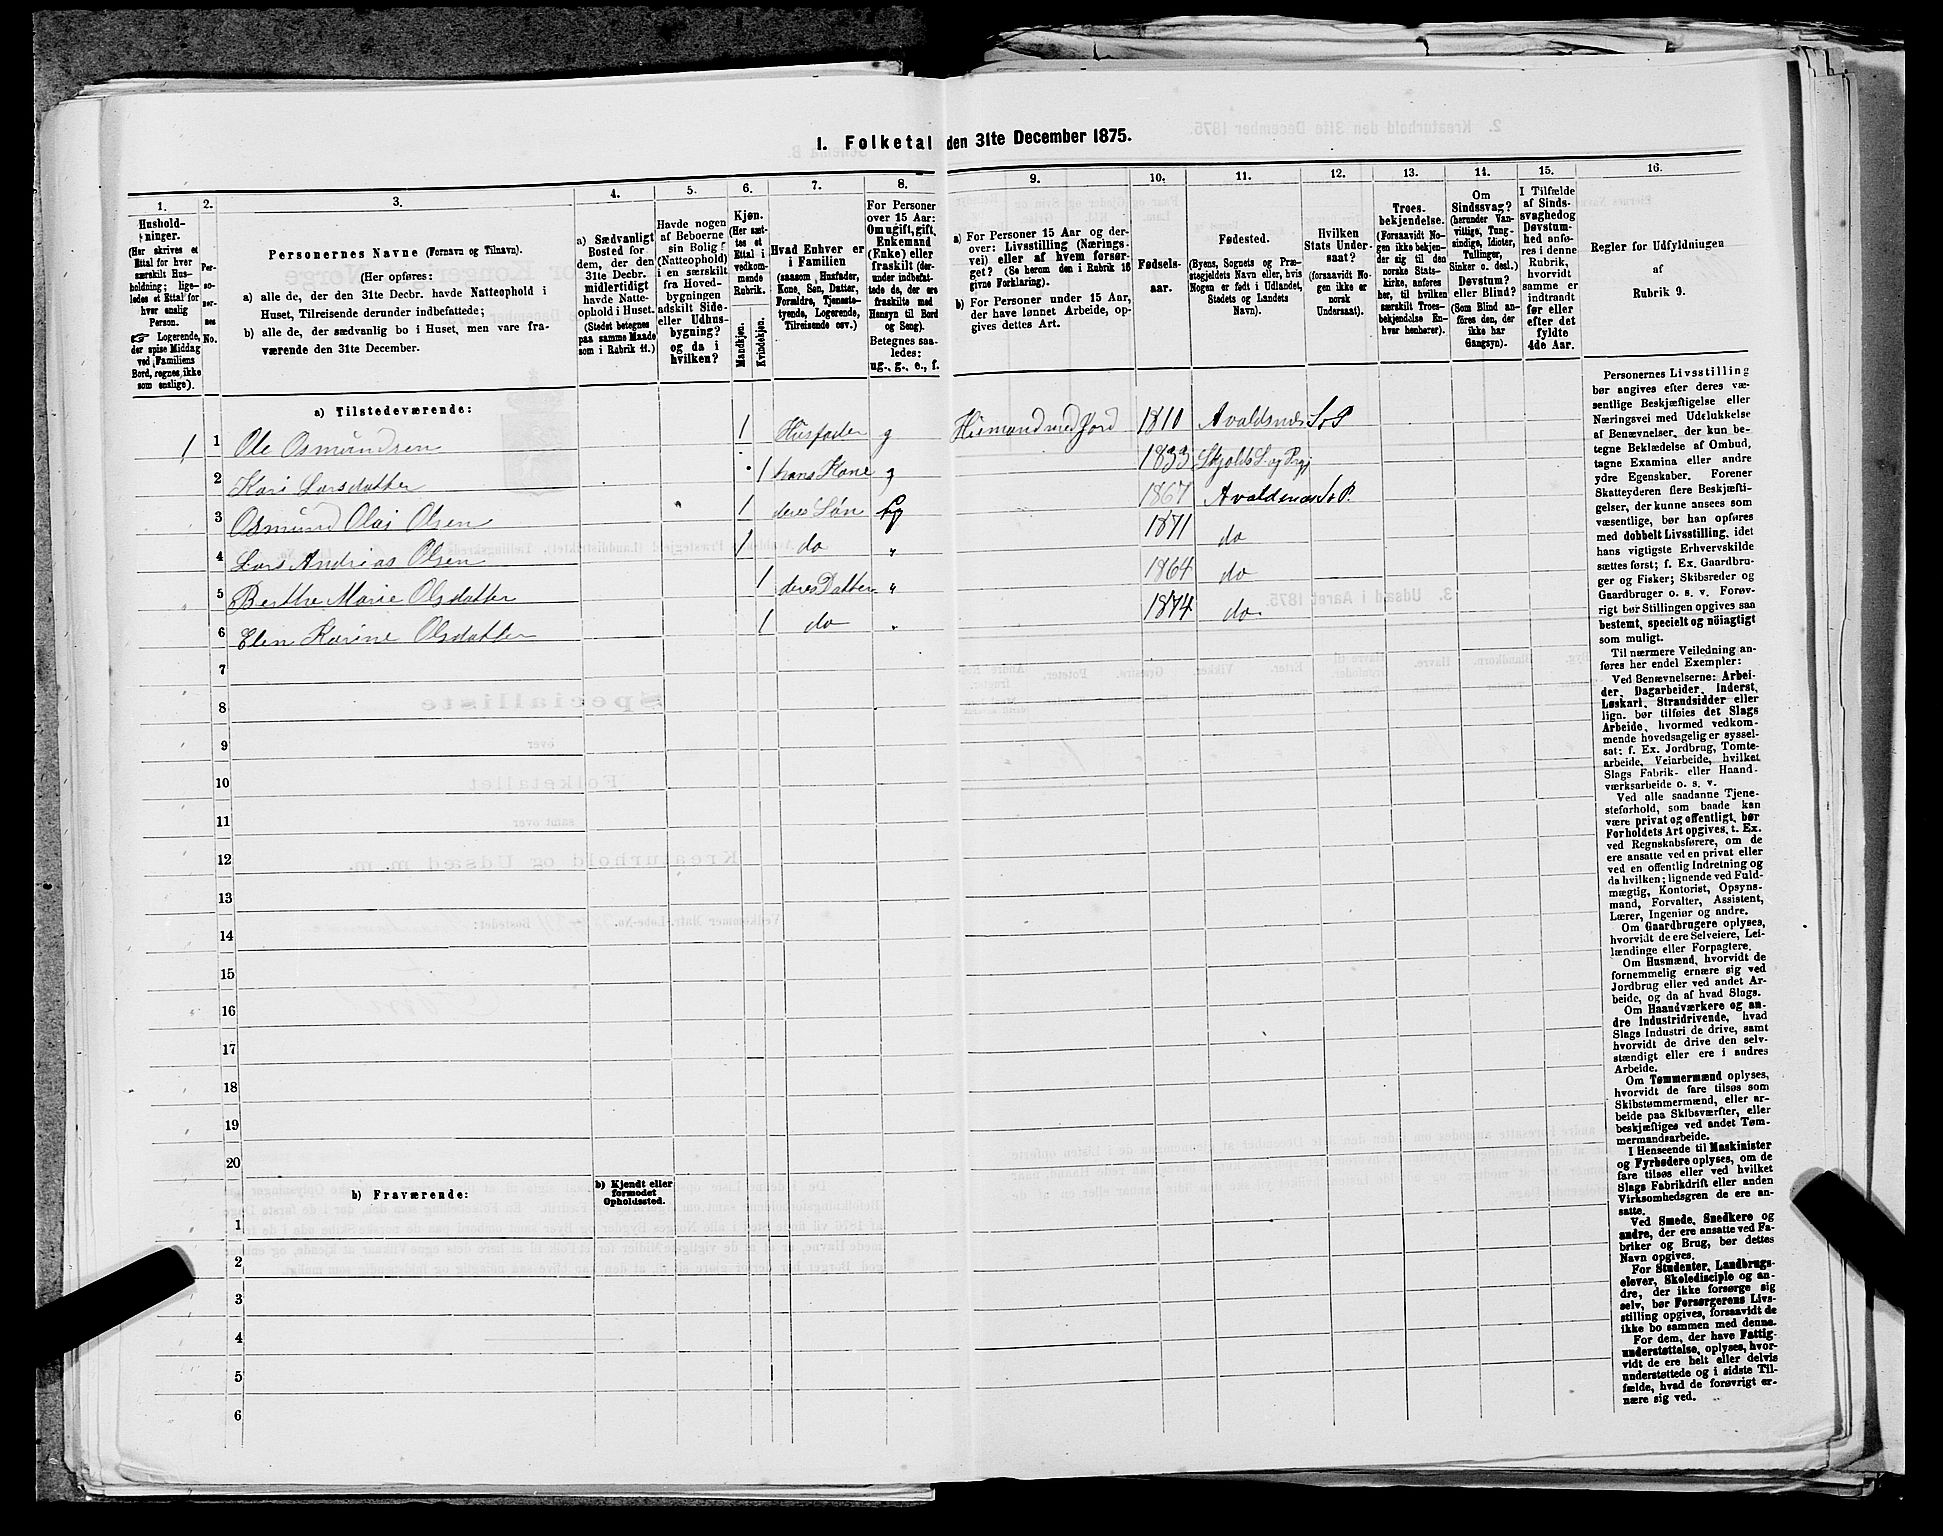 1. Folketal den 31te December 1875.
1.
Hushold-
ninger.
(Her skrives et
Ettal for hver
særskilt Hus-
holdning; lige-
ledes et Ettal for
hver enslig
Person.
☞ Logerende,
der spise Middag
ved Familiens
Bord, regnes ikke
som enslige).
2.
Per-
so-
ner-
nes
No.
3.
Personernes Navne (Fornavn og Tilnavn).
(Her opføres:
a) alle de, der den 31te Decbr. havde Natteophold i
Huset, Tilreisende derunder indbefattede;
b) alle de, der sædvanlig bo i Huset, men vare fra-
værende den 31te December.
4.
a) Sædvanligt
Bosted for
dem, der den
31te Decbr.
midlertidigt
havde Natte-
ophold i Huset.
(Stedet betegnes
paa samme Maade
som i Rubrik 11.)
5.
Havde nogen
af Beboerne
sin Bolig
(Natteophold)
i en særskilt
fra Hoved-
bygningen
adskilt Side-
eller Udhus-
bygning?
og da i
hvilken?
6.
Kjøn.
(Her sæt-
tes et
Ettal i
vedkom-
mende
Rubrik.
Mandkjøn.
Kvindekjøn.
7.
Hvad Enhver er
i Familien
(saasom Husfader,
Kone, Søn, Datter,
Forældre, Tjeneste-
tyende, Logerende,
Tilreisende osv.)
8.
For Personer
over 15 Aar:
Om ugift, gift,
Enkemand
(Enke) eller
fraskilt (der-
under indbefat-
tede de, der ere
fraskilte med
Hensyn til Bord
og Seng).
Betegnes saa-
ledes:
ug., g., e., f.
9.
a) For Personer 15 Aar og der-
over: Livsstilling (Nærings-
vei) eller af hvem forsør-
get? (Se herom den i Rubrik 16
givne Forklaring).
b) For Personer under 15 Aar,
der have lønnet Arbeide, op-
gives dettes Art.
10.
Fødsels-
aar.
11.
Fødested.
(Byens, Sognets og Præ-
stegjeldets Navn eller, hvis
Nogen er født i Udlandet,
Stedets og Landets
Navn).
12.
Hvilken
Stats Under-
saat?
(forsaavidt No-
gen ikke er
norsk
Undersaat).
13.
Troes-
bekjendelse.
(Forsaavidt No-
gen ikke bekjen-
der sig til den
norske Stats-
kirke, anføres
her, til hvilken
særskilt Troes-
bekjendelse En-
hver henhører).
14.
Om
Sindssvag?
(herunder Van-
vittige, Tung-
sindige, Idioter,
Tullinger,
Sinker o. desl.)
Døvstum?
eller Blind?
(Som Blind an-
føres den, der
ikke har
Gangsyn).
15.
I Tilfælde
af Sinds-
svaghed og
Døvstum-
hed anfø-
res i denne
Rubrik,
hvorvidt
samme er
indtraadt
før eller
efter det
fyldte
4de Aar.
16.
Regler for Udfyldningen
af
Rubrik 9.
a) Tilstedeværende:
1 1 Ole Osmundsen 1 Husfader g Husmand med Jord 1810 Avaldsnæs S. P.
2 Kari Larsdatter 1 hans Kone g 1833 Skjolds S. og Prgj
3 Osmund Olai Olsen 1 deres Søn 1867 Avaldsnæs S. P.
4 Lars Andreas Olsen 1 do " 1871 do
5 Berthe Marie Olsdatter 1 deres Datter " 1864 do
6 Elen Karine Olsdatter 1 do " 1874 do
7
8
9
10
11
12
13
14
15
16
17
18
19
20
b) Fraværende:
b) Kjendt eller
formodet
Opholdssted.
1
2
3
4
5
6
Personernes Livsstilling
bør angives efter deres væ-
sentlige Beskjæftigelse eller
Næringsvei med Udelukkelse
af Benævnelser, der kun be-
tegne Beklædelse af Ombud,
tagne Examina eller andre
ydre Egenskaber. Forener
Skatteyderen flere Beskjæfti-
gelser, der kunne ansees som
væsentlige, bør han opføres
med dobbelt Livsstilling, idet
hans vigtigste Erhvervskilde
sættes først; f. Ex. Gaardbru-
ger og Fisker; Skibsreder og
Gaardbruger o. s. v. Forøv-
rigt bør Stillingen opgives saa
bestemt, specielt og nöiagtigt
som muligt.
Til nærmere Veiledning an-
føres her endel Exempler:
Ved Benævnelserne: Arbei-
der, Dagarbeider, Inderst,
Løskarl, Strandsidder eller
lign. bør tilføies det Slags
Arbeide, hvormed vedkom-
mende hovedsagelig er syssel-
sat; f. Ex. Jordbrug, Tomte-
arbeide, Veiarbeide, hvilket
Slags Fabrik- eller Haand-
værksarbeide o. s. v.
Ved alle saadanne Tjene-
steforhold, som baade kan
være privat og offentligt, bør
Forholdets Art opgives, t. Ex.
ved Regnskabsførere, om de
ere ansatte ved en privat eller
ved en offentlig Indretning og
da hvilken; lignende ved Fuld-
mægtig, Kontorist, Opsyns-
mand, Forvalter, Assistent,
Lærer, Ingeniør og andre.
Om Gaardbrugere oplyses,
hvorvidt de ere Selveiere, Lei-
lændinge eller Forpagtere.
Om Husmænd, hvorvidt de
fornemmelig ernære sig ved
Jordbrug eller ved andet Ar-
beide, og da af hvad Slags.
Om Haandværkere og an-
dre Industridrivende, hvad
Slags Industri de drive, samt
hvorvidt de drive den selv-
stændigt eller ere i andres
Arbeide.
Om Tømmermænd oplyses,
hvorvidt de fare tilsøs som
Skibstømmermænd, eller ar-
beide paa Skibsværfter, eller
beskjæftiges ved andet Tøm-
mermandsarbeide.
I Henseende til Maskinister
og Fyrbødere oplyses, om de
fare tilsøs eller ved hvilket
Slags Fabrikdrift eller anden
Virksomhedsgren de ere an-
satte.
Ved Smede, Snedkere og
andre, der ere ansatte ved Fa-
briker og Brug, bør dettes
Navn opgives.
For Studenter, Landbrugs-
elever, Skoledisciple og an-
dre, der ikke forsørge sig
selv, bør Forsørgerens Livs-
stilling opgives, forsaavidt de
ikke bo sammen med denne.
For dem, der have Fattig-
understøttelse, oplyses, hvor-
vidt de ere helt eller delvis
understøttede og i sidste Til-
fælde, hvad de forøvrigt er-
nære sig ved.